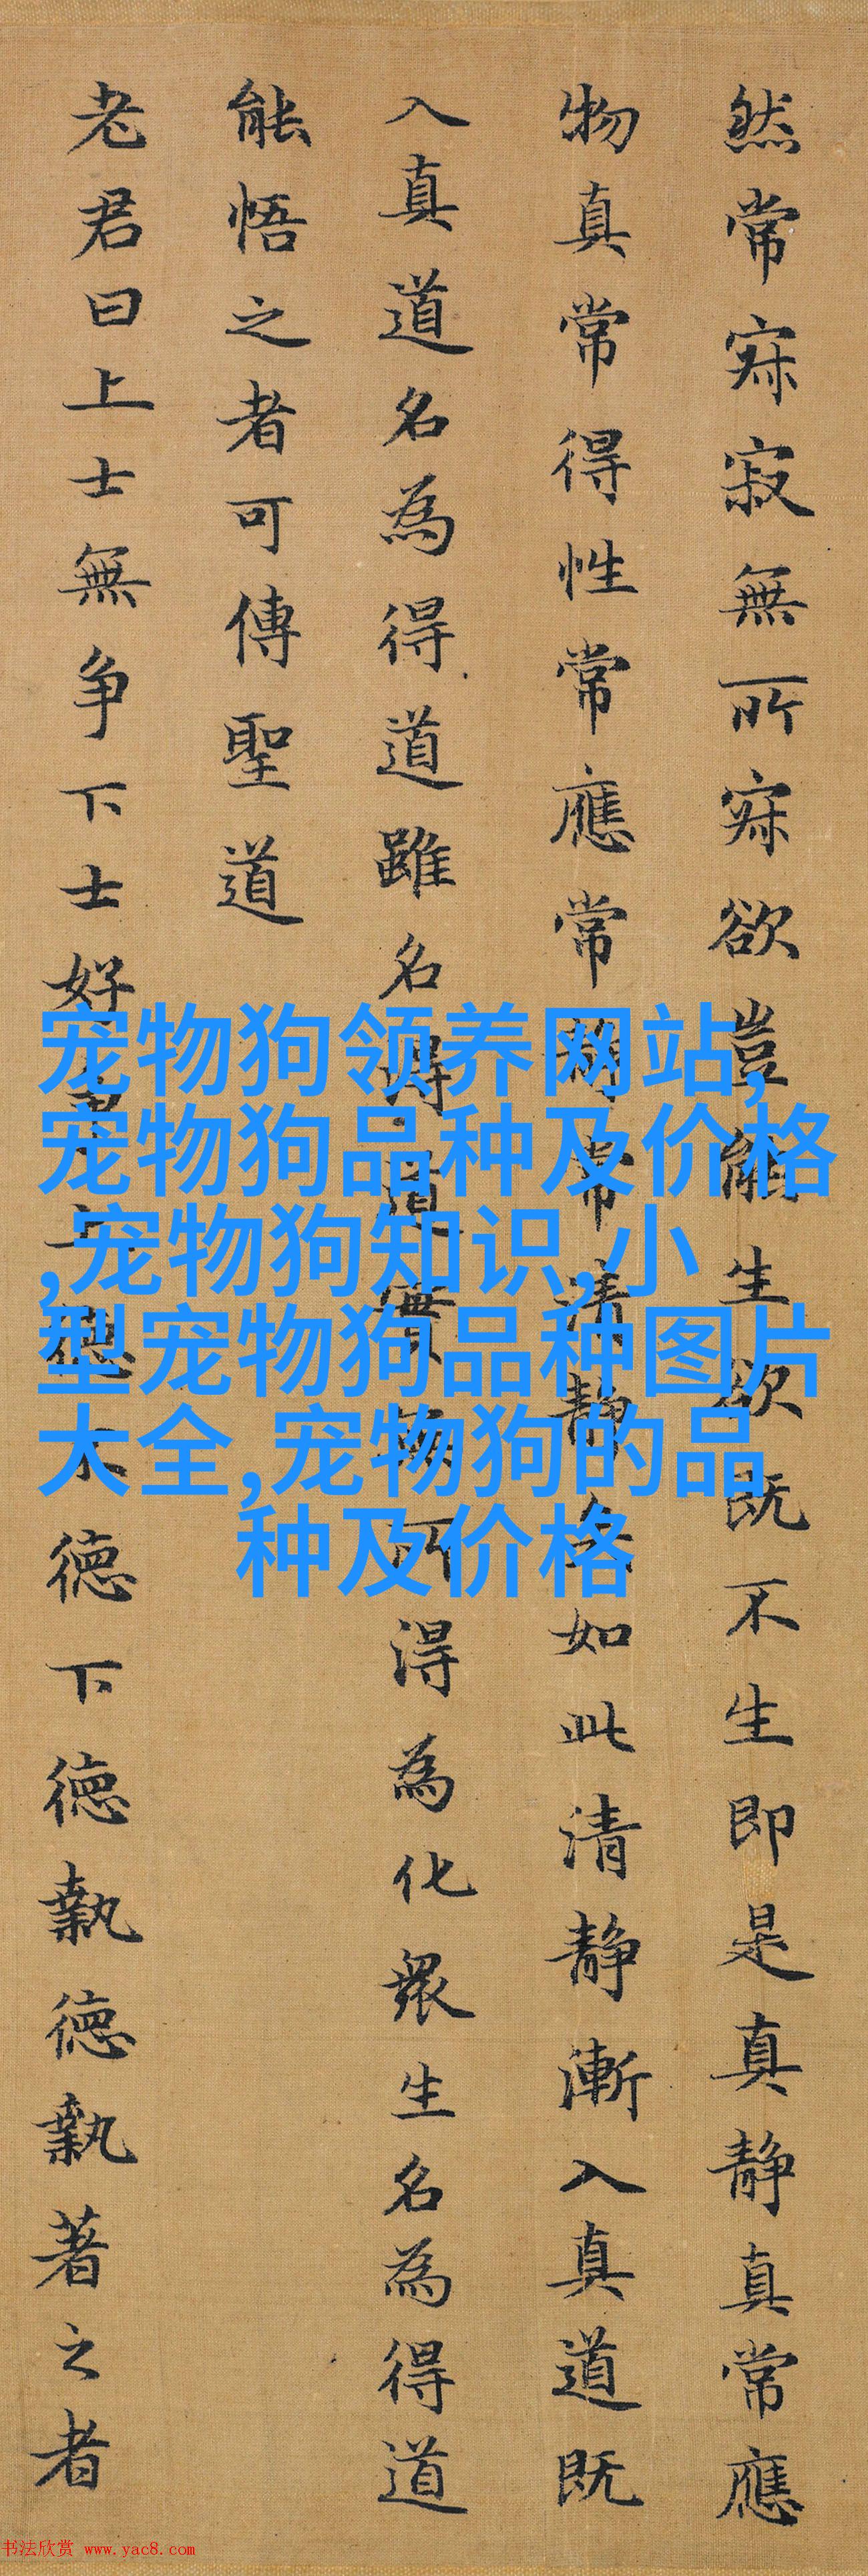 然常寂寂無所寂欲豈能生欲既不生即是真静真常應
物真常得性常應常静常清静矣如此清静漸入真道既
入真道名為得道雖名得道實無所得為化衆生名為得道
能悟之者可傳聖道
老君曰上士無争下士好争上德不德下德執德執著之者
宠物狗领养网站,
宠物狗品种及价格
,宠物狗知识,小
型宠物狗品种图片
大全,宠物狗的品
种及价格
书法欣赏 www.yac8.com